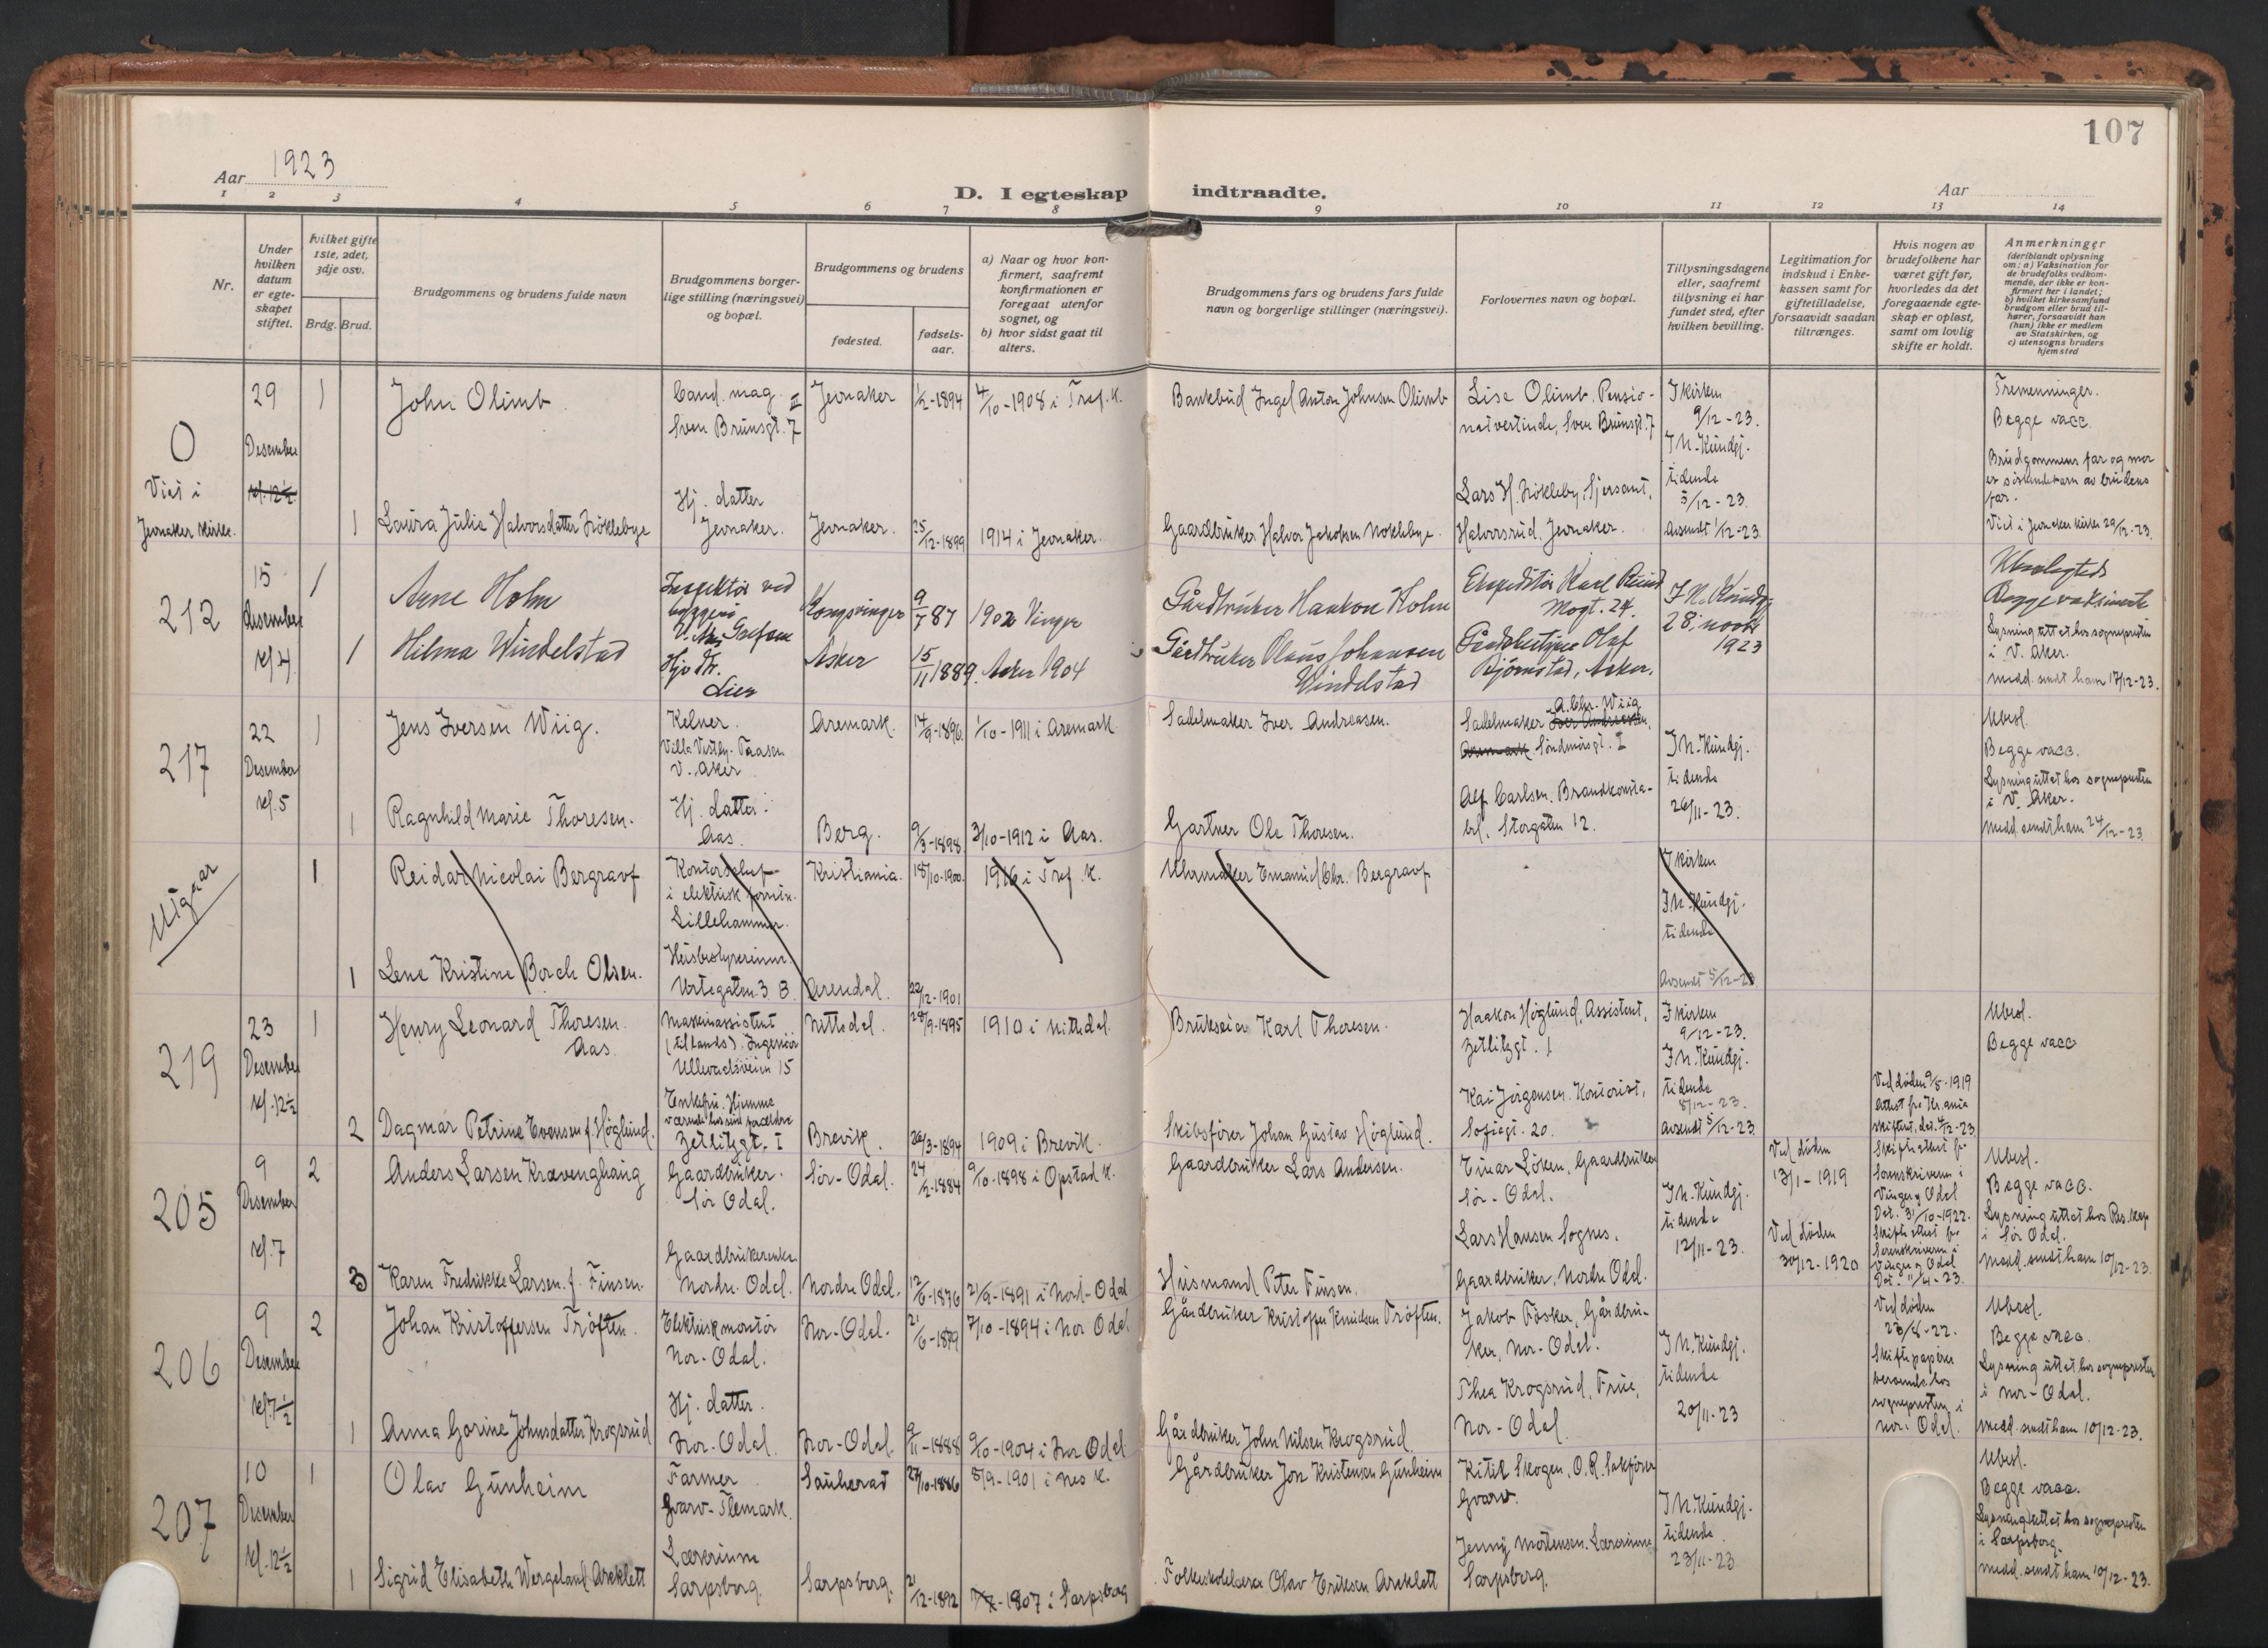 107
Aar 1923
D. I egteskap indtraadte.
Aar
1 2 3 4 5 6 7 8 9 10 11 12 13 14
Nr.
Under hvilken datum er egteskapet stiftet.
Hvilket gifte 1ste, 2det, 3dje osv.
Brdg. Brud.
Brudgommens og brudens fulde navn
Brudgommens borgerlige stilling (næringsvei) og bopæl.
Brudgommens og brudens
fødested.
fødselsaar.
a) Naar og hvor konfirmert, saafremt konfirmationen er foregaat utenfor sognet, og
b) hvor sidst gaat til alters.
Brudgommens fars og brudens fars fulde navn og borgerlige stillinger (næringsvei).
Forlovernes navn og bopæl.
Tillysningsdagene eller, saafremt tillysning ei har fundet sted, efter hvilken bevilling.
Legitimation for indskud i Enkekassen samt for giftetilladelse, forsaavidt saadan tiltrænges.
Hvis nogen av brudefolkene har været gift før, hvorledes da det foregaaende egteskap er opløst, samt om lovlig skifte er holdt.
Anmerkninger (deriblandt oplysning om: a) Vaksination for de brudefolks vedkommende, der ikke er konfirmert her i landet; b) hvilket kirkesamfund brudgom eller brud tilhører, forsaavidt han (hun) ikke er medlem av Statskirken, og c) utensogns bruders hjemsted
0
Viet i
Jevnaker kirke.
29
Desember
kl. 12½
1 John Olimb. Cand. mag. Sven Brunsgt. 7 III Jevnaker 1/2-1894 4/10-1908 i Tref. K. Bankbud Ingel Anton Johnsen Olimb
Lise Olimb, Pensionatvertinde, Sven Brunsgt. 7
I kirken 9/12-23.
I N. Kundgj. tidende 5/12-23.
Avsendt 1/12-23.
Tremenninger.
Begge vacc.
Brudgommens far og mor er søskendebarn av brudens far.
Viet i Jevnaker kirke 29/12-23.
1 Laura Julie Halvorsdatter Nøklebye Hj. datter Jevnaker. Jevnaker. 25/12-1899 1914 i Jevnaker. Gaardbruker Halvor Jakobsen Nøklebye.
Lars H. Nøkleby, Sjersant, Halvorsrud, Jevnaker.
212
15
desember
kl 4
1 Arne Holm Inspektør ved Kongsvinger 9/7 87 1902 Vinger Gårdbruker Haakon Holm
Ekspeditør Karl Mogt. 24.
I N. Kundgj 28. novbr 1923
Begge vaksinerte
Lysning uttat hos sognepresten i V. Aker.
medd. sendt ham 17/12-23.
1 Hilma Windelstad Hj. dtr. Lier Asker 15/11 1889. Asker 1904 Gårdbruker Olaus Johansen Windelstad
Olaf Bjørnstad, Asker.
217
22
Desember
kl. 5
1 Jens Iversen Wiig. Kelner. Villa Vestby. Taasen V. Aker Aremark. 14/9-1896. 1/10-1911 i Aremark. Sadelmaker Iver Andreasen.
Sadelmaker A. Chr. Wiig Søndmørsgt. I
I N. Kundgj. tidende 26/11-23.
Ubesl.
Begge vacc.
Lysning uttat hos sognepresten i V. Aker.
Medd. sendt ham 24/12-23
1 Ragnhild Marie Thoresen. Hj. datter. Aas. Berg. 9/3-1898 3/10-1912 i Aas. Gartner Ole Thoresen.
Alf Carlsen. Brandkonstabel. Storgaten 12.
Utgaar
1 Reidar Nicolai Bergravf Kontorchef i elektrisk forretn. Lillehammer. Kristiania. 18/10-1900. 1916 i Tref. K. Uhrmaker Emanuel Chr. Bergravf
I kirken
I N. Kundgj. tidende
Avsendt 5/12-23
1 Lene Kristine Borch Olsen. Husbestyrerinne Urtegaten 3 B. Arendal. 22/12-1901
219
23
Desember
kl. 12½
1 Henry Leonard Thoresen Aas. Maskinassistent (tillands). Ingeniør Ullevoldsveien 15 Nittedal. 28/9-1895 1910 i Nittedal. Brukseier Karl Thoresen.
Haakon Høglund, Assistent, Zetlitzgt. 1
I kirken 9/12-23.
I N. Kundgj. tidende 8/12-23.
Avsendt 5/12-23
Ubesl.
Begge vacc
2 Dagmar Petrine Evensen f. Høglund. Enkefru. Hjemmeværende hos sine forældre Zetlitzgt. I Brevik. 26/3-1894 1909 i Brevik. Skibsfører Johan Gustav Høglund.
Kai Jørgensen. Kontorist, Sofiegt. 20.
Ved døden 9/8-1919
Attest fra Kr.ania skifteret. dat. 4/12-23
205
9
Desember
kl. 7
2 Anders Larsen Kravenghaug Gaardbruker. Sør Odal. Sør-Odal. 24/2-1884 9/10-1898 i Opstad K. Gaardbruker Lars Andersen.
Einar Løken, Gaardbruker Sør-Odal.
I N. Kundgj. tidende 12/11-23.
Ved døden 13/1-1919
Skifteattest fr. Sorenskriveren i Vinger og Odal Dat. 31/10-1922.
Ubesl.
Begge vacc.
Lysning uttat hos Res. kap i Sør Odal.
Medd. sendt ham 10/12-23.
3 Karen Fredrikke Larsen f. Finsen. Gaardbrukerenke Nordre Odal. Nordre Odal. 12/6-1876 21/9-1891 i Nord-Odal Husmand Peter Finsen.
Lars Hansen Sognes. Gaardbruker, Nordre Odal.
Ved døden 30/12-1920
Skifteattest fra Sorenskriveren i Vinger og Odal Dat. 11/4-23.
206
9
Desember
kl 7½
2 Johan Kristoffersen Trøften. Elektriskmontør Nor-Odal. Nor-Odal. 21/6-1879 7/10-1894 i Nor Odal. Gårdbruker Kristoffer Knudsen Trøften.
Jakob Fosker, Gårdbruker, Nor-Odal.
I N. Kundgj. tidende 20/11-23
Ved døden 23/8-22.
Skiftepapirer beroende hos sognepresten i Nor-Odal.
Ubesl.
Begge vacc.
Lysning uttat hos sognepresten i Nor-Odal.
Medd. sendt ham 10/12-23.
1 Anna Gorine Johnsdatter Krogsrud Hj. datter. Nor-Odal. Nor-Odal. 9/11-1888 9/10-1904 i Nor Odal Gårdbruker John Nilsen Krogsrud.
Thea Krogsrud, Frue, Nor-Odal.
207
10
Desember
kl. 12½
1 Olav Gunheim Farmer Gvarv-Tlemark. Sauherad 27/10-1886 8/9-1901 i Nes K. Gårdbruker Jon Kristensen Gunheim
Kitil Skogen, O. R. Sakfører Gvarv.
I N. Kundgj. tidende 23/11-23
Ubesl.
Begge vacc.
Lysning uttat hos sognepresten i Sarpsborg.
medd. sendt ham 10/12-23.
1 Sigrid Elisabeth Wergeland Areklett Lærerinne Sarpsborg. Sarpsborg. 21/12-1892 1907 i Sarpsborg Folkeskolelærer Olav Eriksen Areklett
Jenny Mortensen. Lærerinne Sarpsborg.